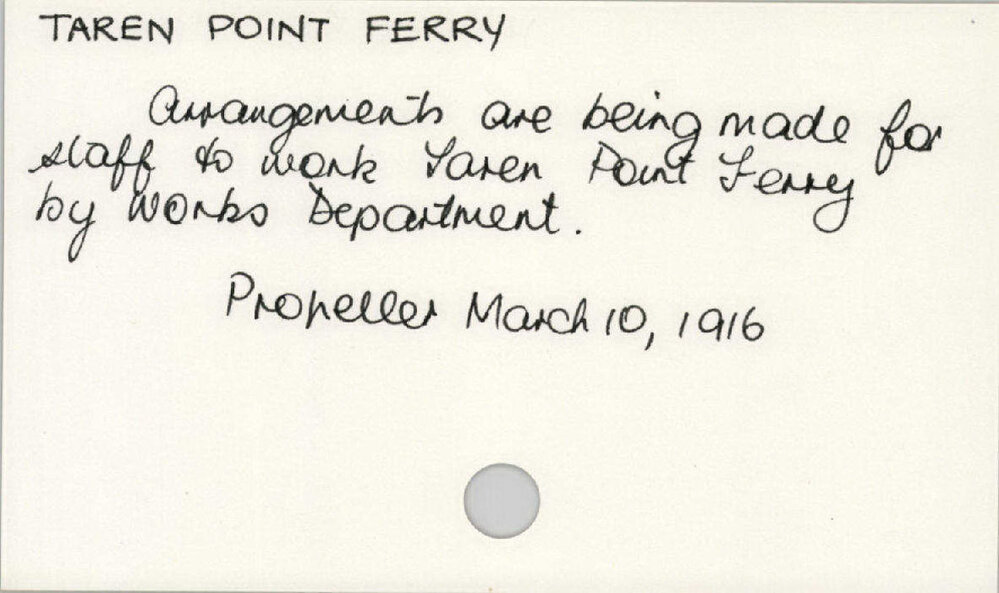 TAREN POINT FERRY
Arrangements are being made for
staff to work Taren Point Ferry
by Works Department.
Propeller March 10, 1916